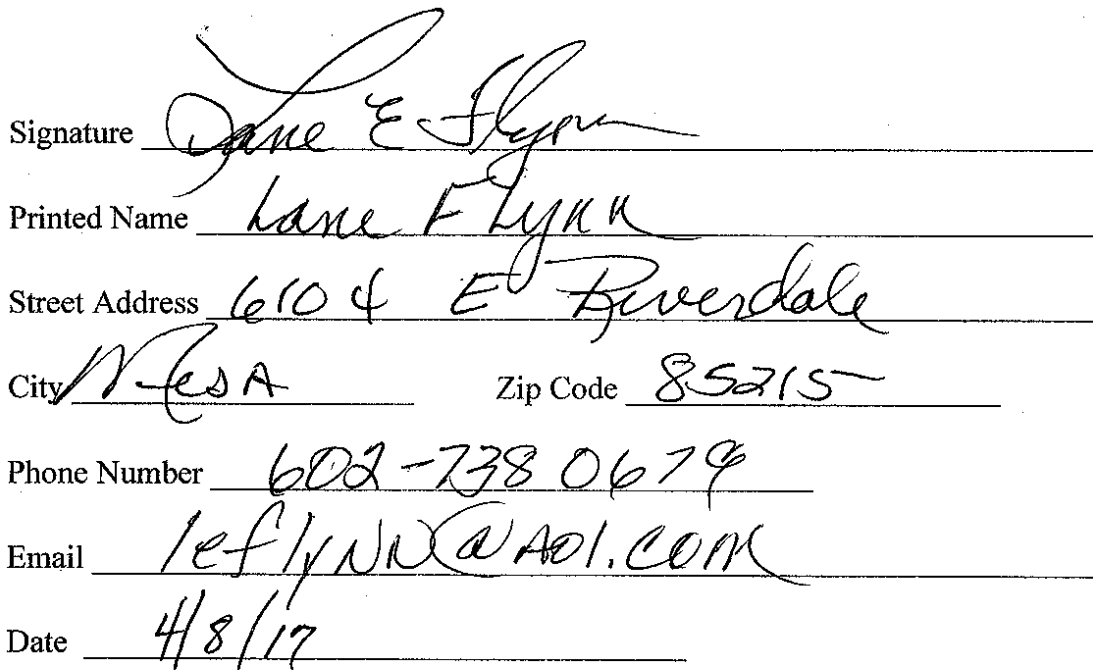 Signature Lane E Flynn
Printed Name Lane Flynn
Street Address 6104 E Riverdale
City Mesa Zip Code 85215
Phone Number 602-738 0679
Email leflynn@aol.com
Date 4/8/17